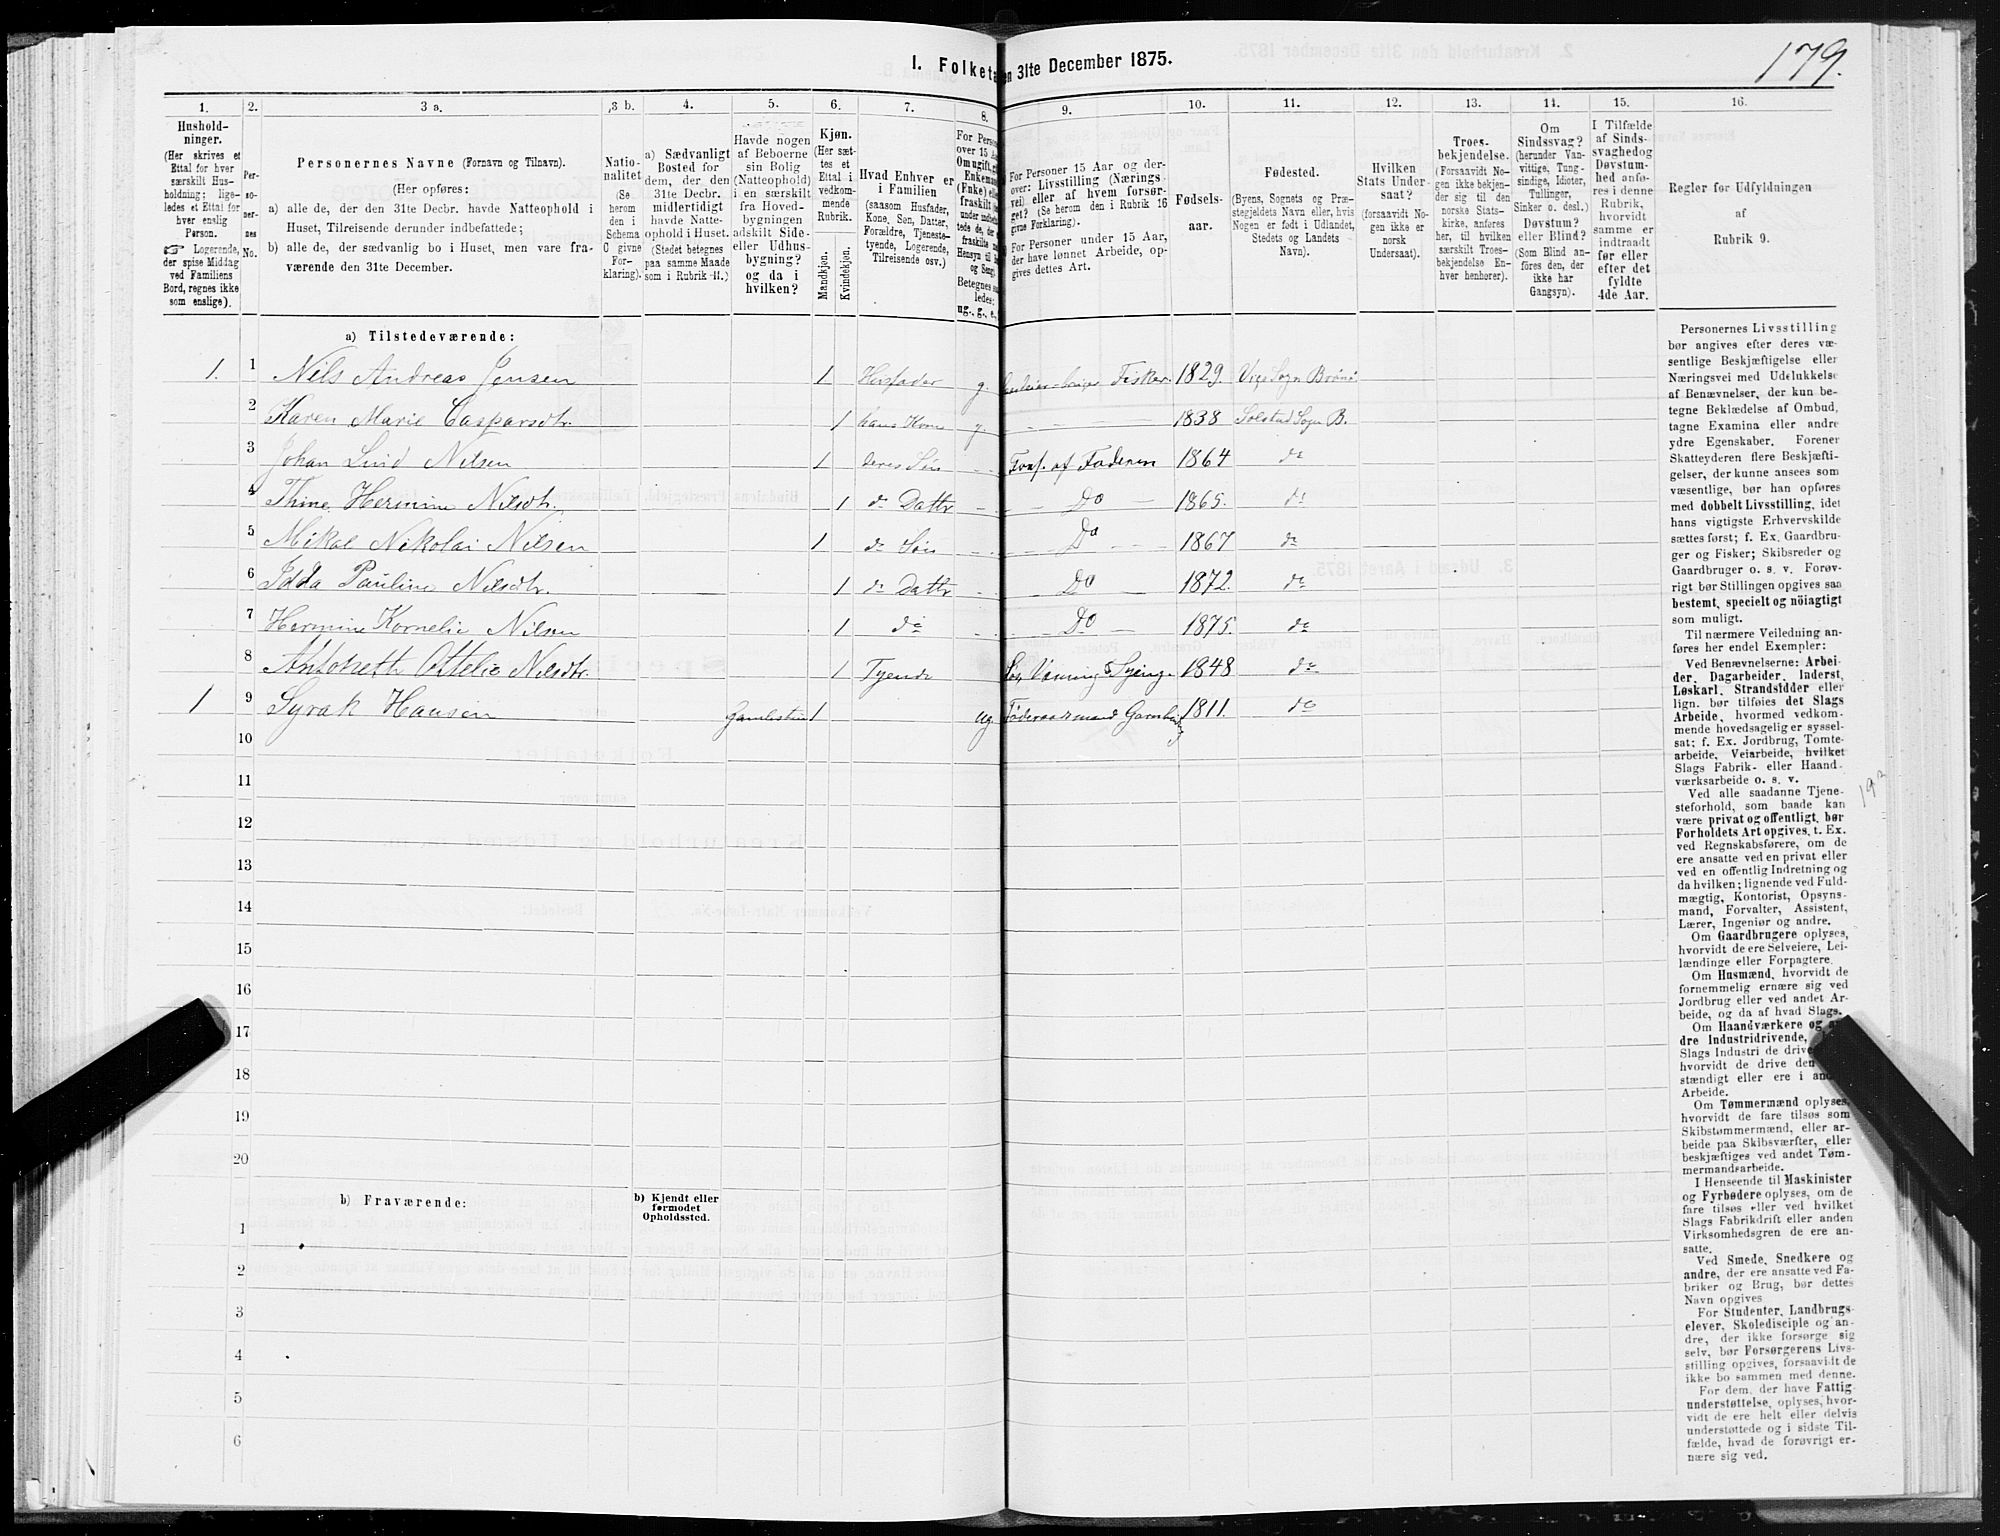 I. Folketa en 31te December 1875.
179.
1. 2. 3 a. 3 b. 4. 5. 6. 7. 8. 9. 10. 11. 12. 13. 14. 15. 16.
Hushold-
ninger.
(Her skrives et
Ettal for hver
særskilt Hus-
holdning; lige-
ledes et Ettal for
hver enslig
Person.
☞ Logerende,
der spise Middag
ved Familiens
Bord, regnes ikke
som enslige).
Per-
so-
ner-
nes
No.
Personernes Navne (Fornavn og Tilnavn).
(Her opføres:
a) alle de, der den 31te Decbr. havde Natteophold i
Huset, Tilreisende derunder indbefattede;
b) alle de, der sædvanlig bo i Huset, men vare fra-
værende den 31te December.
Natio-
nalitet
(Se
herom
den i
Schema
C givne
For-
klaring).
a) Sædvanligt
Bosted for
dem, der den
31te Decbr.
midlertidigt
havde Natte-
ophold i Huset.
(Stedet betegnes
paa samme Maade
som i Rubrik 11.)
Havde nogen
af Beboerne
sin Bolig
(Natteophold)
i en særskilt
fra Hoved-
bygningen
adskilt Side-
eller Udhus-
bygning?
og da i
hvilken?
Kjøn.
(Her sæt-
tes et
Ettal i
vedkom-
mende
Rubrik.
Mandkjøn.
Kvindekjøn.
Hvad Enhver er
i Familien
(saasom Husfader,
Kone, Søn, Datter,
Forældre, Tjeneste-
tyende, Logerende,
Tilreisende osv.)
For Perso
over 15 A
Om ugift, g
Enkeman
(Fnke) elle
fraskilt
Hensyn til
og Seng
Betegnes
ledes:
ug., g., e.,
For Personer 15 Aar og der-
over: Livsstilling (Nærings
vei) eller af hvem forsør-
get? (Se herom den i Rubrik 16
givne Forklaring).
For Personer under 15 Aar,
der have lønnet Arbeide, op-
gives dettes Art.
Fødsels-
aar.
Fødested.
(Byens, Sognets og Præ-
stegjeldets Navn eller, hvis
Nogen er født i Udlandet,
Stedets og Landets
Navn).
Hvilken
Stats Under-
saat?
(forsaavidt No-
gen ikke er
norsk
Undersaat).
Troes-
bekjendelse.
(Forsaavidt No-
gen ikke bekjen-
der sig til den
norske Stats-
kirke, anføres
her, til hvilken
særskilt Troes-
bekjendelse En-
hver henhører).
Om
Sindssvag?
(herunder Van-
vittige, Tung-
sindige, Idioter,
Tullinger,
Sinker o. desl.)
Døvstum?
eller Blind?
(Som Blind an-
føres den, der
ikke har
Gangsyn).
I Tilfælde
af Sinds-
svaghed og
Døvstum-
hed anfø-
res i denne
Rubrik,
hvorvidt
samme er
indtraadt
før eller
efter det
fyldte
4de Aar.
Regler for Udfyldningen
af
Rubrik 9.
a) Tilstedeværende:
1. 1 Nils Andreas Jensen 1 Husfader g. Fisker. 1829. Sogn Brønø
2 Karen Marie Caspersdtr. 1 hans Kone g. 1838 Solstad Sogn B.
3 Johan Lind Nilsen 1 deres Søn Fors. af Faderen 1864 do
4 Thine Hermine Nilsdtr. 1 do Dattr Do 1865. do
5 Mikal Nikolai Nilsen 1 do Søn Do 1867 do
6 Idda Pauline Nilsdtr. 1 do Dattr Do 1872. do
7 Hermine Kornelie Nilsen 1 do Do 1875. do
8 Antonett Ottelie Nilsdtr. 1 Tyende 1848 do
1 9 Syrak Hansen 1 ug Føderaadsmand 1811. do
10
11
12
13
14
15
16
17
18
19
20
b) Fraværende:
b) Kjendt eller
formodet
Opholdssted.
1
2
3
4
5
6
Personernes Livsstilling
bør angives efter deres væ-
sentlige Beskjæftigelse eller
Næringsvei med Udelukkelse
af Benævnelser, der kun be-
tegne Beklædelse af Ombud,
tagne Examina eller andre
ydre Egenskaber. Forener
Skatteyderen flere Beskjæfti-
gelser, der kunne ansees som
væsentlige, bør han opføres
med dobbelt Livsstilling, idet
hans vigtigste Erhvervskilde
sættes først; f. Ex. Gaardbru-
ger og Fisker; Skibsreder og
Gaardbruger o. s. v. Forøv-
rigt bør Stillingen opgives saa
bestemt, specielt og nöiagtigt
som muligt.
Til nærmere Veiledning an-
føres her endel Exempler:
Ved Benævnelserne: Arbei-
der, Dagarbeider, Inderst,
Løskarl, Strandsidder eller
lign. bør tilføies det Slags
Arbeide, hvormed vedkom-
mende hovedsagelig er syssel-
sat; f. Ex. Jordbrug, Tomte-
arbeide, Veiarbeide, hvilket
Slags Fabrik- eller Haand-
værksarbeide o. s. v.
Ved alle saadanne Tjene-
steforhold, som baade kan
være privat og offentligt, bør
Forholdets Art opgives, t. Ex.
ved Regnskabsførere, om de
ere ansatte ved en privat eller
ved en offentlig Indretning og
da hvilken; lignende ved Fuld-
mægtig, Kontorist, Opsyns-
mand, Forvalter, Assistent,
Lærer, Ingeniør og andre.
Om Gaardbrugere oplyses,
hvorvidt de ere Selveiere, Lei-
lændinge eller Forpagtere.
Om Husmænd, hvorvidt de
fornemmelig ernære sig ved
Jordbrug eller ved andet Ar-
beide, og da af hvad Slags.
Om Haandværkere og an-
dre Industridrivende,
Slags Industri de drive
hvorvidt de drive den
stændigt eller ere i
Arbeide.
Om Tømmermænd oplyses,
hvorvidt de fare tilsøs som
Skibstømmermænd, eller ar-
beide paa Skibsværfter, eller
beskjæftiges ved andet Tøm-
mermandsarbeide.
I Henseende til Maskinister
og Fyrbødere oplyses, om de
fare tilsøs eller ved hvilket
Slags Fabrikdrift eller anden
Virksomhedsgren de ere an-
satte.
Ved Smede, Snedkere og
andre, der ere ansatte ved Fa-
briker og Brug, bør dettes
Navn opgives
For Studenter, Landbrugs-
elever, Skoledisciple og an-
dre, der ikke forsørge sig
selv, bør Forsørgerens Livs-
stilling opgives, forsaavidt de
ikke bo sammen med denne.
For dem, der have Fattig-
understøttelse, oplyses, hvor-
vidt de ere helt eller delvis
understøttede og i sidste Til-
fælde, hvad de forøvrigt er-
nære sig ved.